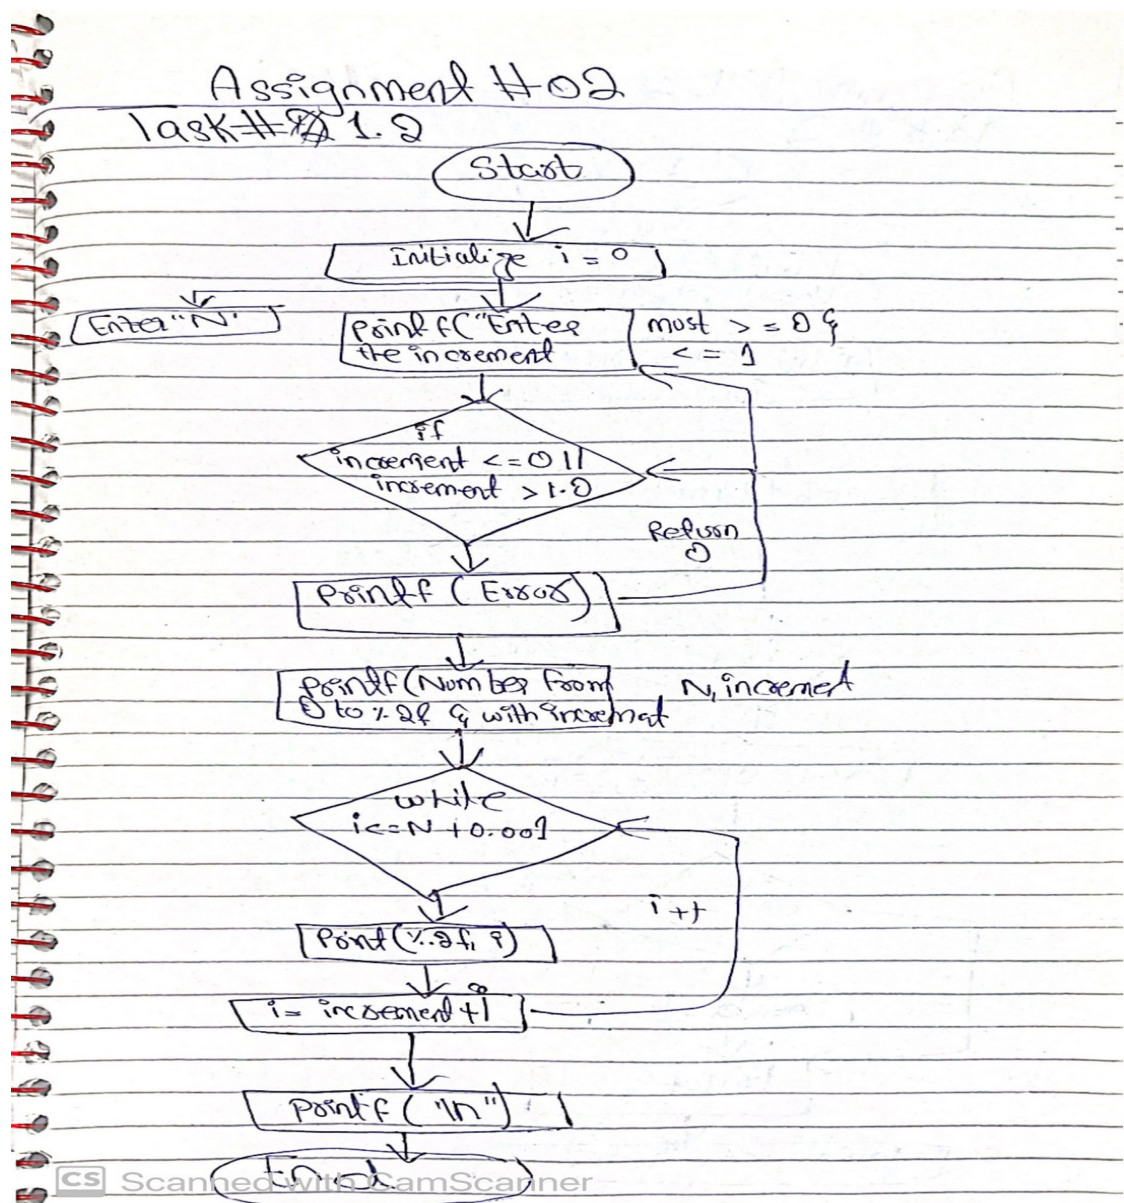 Assignment #02
Task# 1.2
Start
Initialize i = 0
Enter "N"
printf("Enter
the increment
must >= 0 &
<= 1
if
increment <= 0 ||
increment > 1.0
Return
0
Printf (Error)
printf(Number from
0 to %.2f & with increment
N, increment
while
i<=N +0.001
i++
Print(%.2f, i)
i= increment + i
printf( "\n")
End
CS Scanned with CamScanner